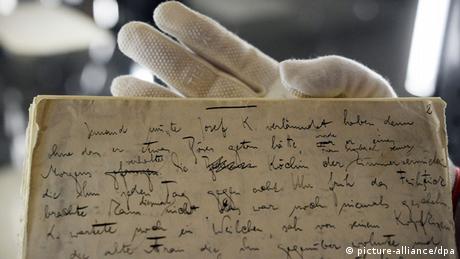 2
Jemand musste Josef K. verläumdet haben denn
ohne dass er etwas Böses getan hätte
Morgens verhaftet Die Köchin der
die ihm jeden Tag gegen acht Uhr früh das Frühstück
brachte kam diesmal nicht Das war noch niemals geschehn
K wartete noch ein Weilchen, sah von seinem Kopfkissen
die alte Frau die ihm gegenüber wohnte und
© picture-alliance/dpa